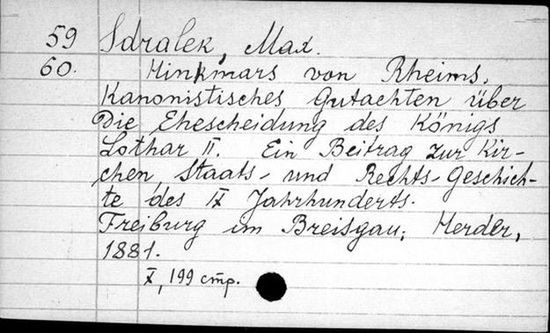 59 Sdralek, Max.
60. Hinkmars von Rheims,
Kanonistisches Gutachten über
Die Ehescheidung des Königs
Lothar II. Ein Beitrag zur Kir-
chen, Staats- und Rechts-Geschich-
te des IX Jahrhunderts.
Freiburg im Breisgau; Herder,
1881.
X, 199 стр.